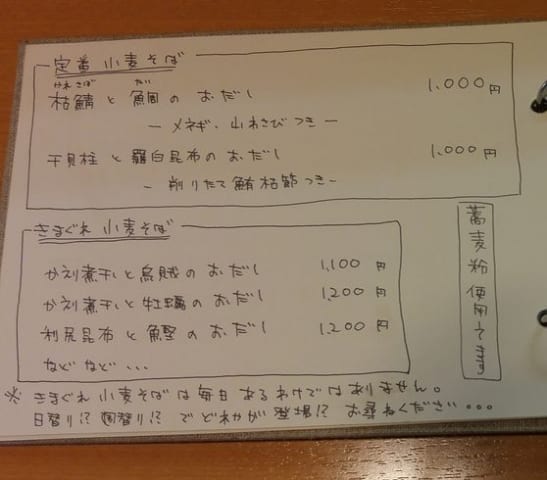 定番 小麦そば
かれさば だい
枯鯖と鯛のおだし 1,000円
ー メネギ、山わさびつき ー
干貝柱と羅臼昆布のおだし 1,000円
ー 削りたて鮪枯節つき ー
きまぐれ 小麦そば
かえり煮干しと烏賊のおだし 1,100円
かえり煮干しと牡蠣のおだし 1,200円
利尻昆布と鰹のおだし 1,200円
などなど・・・
蕎麦粉使用してます
※ きまぐれ 小麦そばは毎日あるわけではありません。
日替り!? 週替り!? でどれかが登場!? お尋ねください・・・